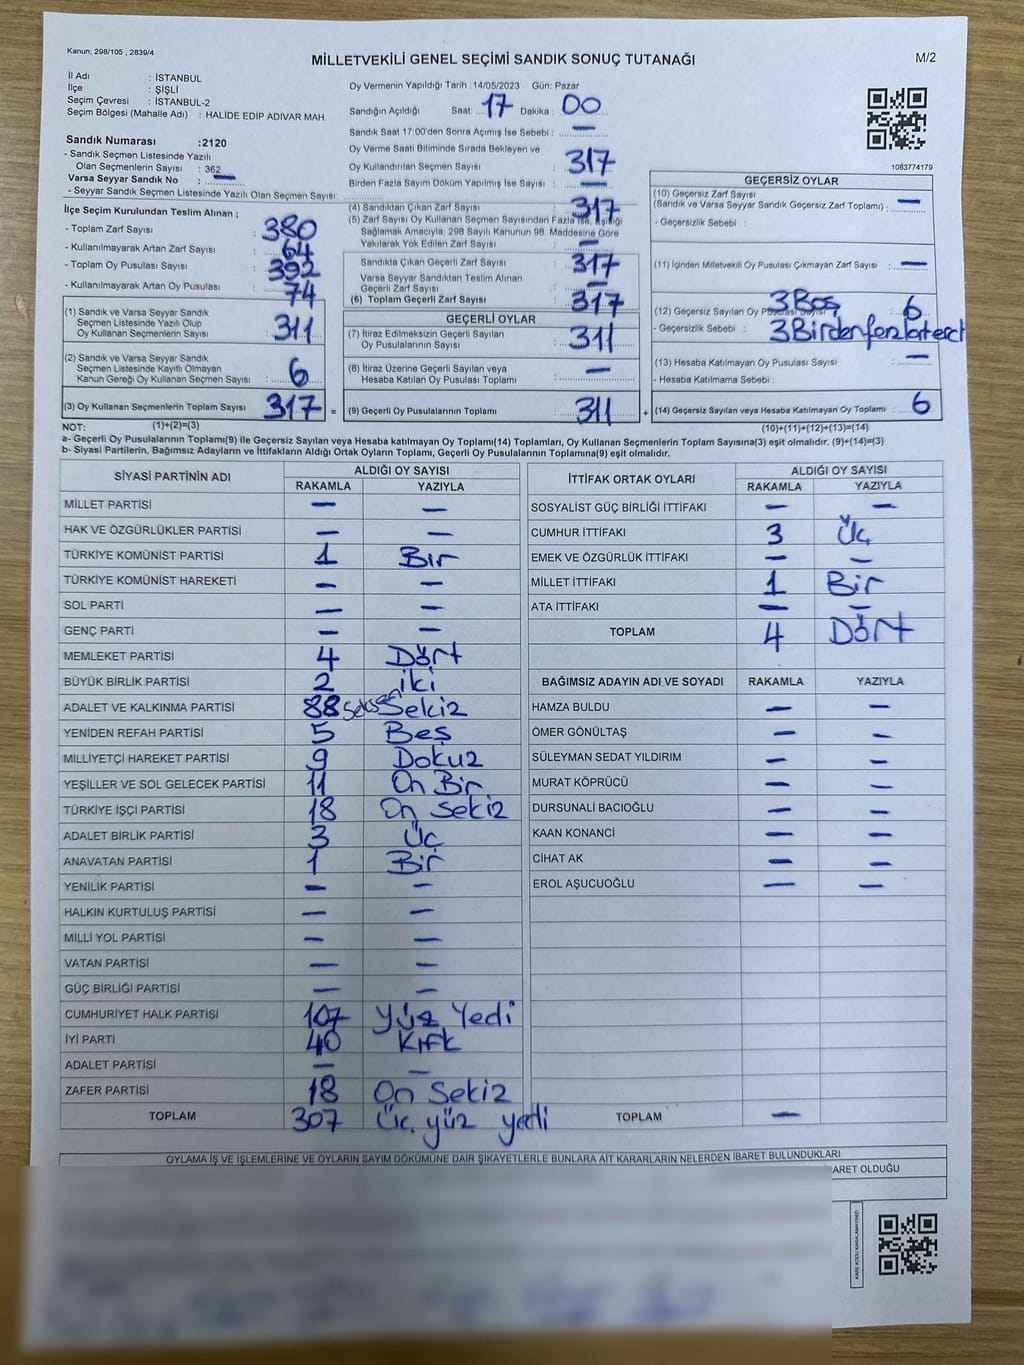 Kanun; 298/105 , 2839/4
MİLLETVEKİLİ GENEL SEÇİMİ SANDIK SONUÇ TUTANAĞI
M/2
İl Adı : İSTANBUL
İlçe : ŞİŞLİ
Seçim Çevresi : İSTANBUL-2
Seçim Bölgesi (Mahalle Adı) : HALİDE EDİP ADIVAR MAH.
Oy Vermenin Yapıldığı Tarih : 14/05/2023 Gün: Pazar
Sandığın Açıldığı Saat: 17 Dakika : 00
Sandık Saat 17:00'den Sonra Açımış İse Sebebi : —
Oy Verme Saati Bitiminde Sırada Bekleyen ve
Oy Kullandırılan Seçmen Sayısı : 317
Birden Fazla Sayım Döküm Yapılmış İse Sayısı : —
1083774179
Sandık Numarası : 2120
- Sandık Seçmen Listesinde Yazılı
Olan Seçmenlerin Sayısı : 362
Varsa Seyyar Sandık No : —
- Seyyar Sandık Seçmen Listesinde Yazılı Olan Seçmen Sayısı:
İlçe Seçim Kurulundan Teslim Alınan ;
- Toplam Zarf Sayısı : 380
- Kullanılmayarak Artan Zarf Sayısı : 64
- Toplam Oy Pusulası Sayısı : 392
- Kullanılmayarak Artan Oy Pusulası : 74
(1) Sandık ve Varsa Seyyar Sandık
Seçmen Listesinde Yazılı Olup
Oy Kullanan Seçmenlerin Sayısı : 311
(2) Sandık ve Varsa Seyyar Sandık
Seçmen Listesinde Kayıtlı Olmayan
Kanun Gereği Oy Kullanan Seçmen Sayısı : 6
(3) Oy Kullanan Seçmenlerin Toplam Sayısı 317 =
(1)+(2)=(3)
(4) Sandıktan Çıkan Zarf Sayısı : 317
(5) Zarf Sayısı Oy Kullanan Seçmen Sayısından Fazla ise, Eşitliği
Sağlamak Amacıyla; 298 Sayılı Kanunun 98. Maddesine Göre
Yakılarak Yok Edilen Zarf Sayısı : —
Sandıkta Çıkan Geçerli Zarf Sayısı : 317
Varsa Seyyar Sandıktan Teslim Alınan
Geçerli Zarf Sayısı :
(6) Toplam Geçerli Zarf Sayısı : 317
GEÇERLİ OYLAR
(7) İtiraz Edilmeksizin Geçerli Sayılan
Oy Pusulalarının Sayısı : 311
(8) İtiraz Üzerine Geçerli Sayılan veya
Hesaba Katılan Oy Pusulası Toplamı : —
(9) Geçerli Oy Pusulalarının Toplamı : 311 +
GEÇERSİZ OYLAR
(10) Geçersiz Zarf Sayısı
(Sandık ve Varsa Seyyar Sandık Geçersiz Zarf Toplamı) : —
- Geçersizlik Sebebi :
(11) İçinden Milletvekili Oy Pusulası Çıkmayan Zarf Sayısı : —
(12) Geçersiz Sayılan Oy Pusulası Sayısı : 3 Boş 6
- Geçersizlik Sebebi : 3 Birden fazla terct
(13) Hesaba Katılmayan Oy Pusulası Sayısı : —
- Hesaba Katılmama Sebebi :
(14) Geçersiz Sayılan veya Hesaba Katılmayan Oy Toplamı : 6
(10)+(11)+(12)+(13)=(14)
NOT:
a- Geçerli Oy Pusulalarının Toplamı(9) ile Geçersiz Sayılan veya Hesaba katılmayan Oy Toplamı(14) Toplamları, Oy Kullanan Seçmenlerin Toplam Sayısına(3) eşit olmalıdır. (9)+(14)=(3)
b- Siyasi Partilerin, Bağımsız Adayların ve İttifakların Aldığı Ortak Oyların Toplamı, Geçerli Oy Pusulalarının Toplamına(9) eşit olmalıdır.
SİYASİ PARTİNİN ADI ALDIĞI OY SAYISI
RAKAMLA YAZIYLA
MİLLET PARTİSİ — —
HAK VE ÖZGÜRLÜKLER PARTİSİ — —
TÜRKİYE KOMÜNİST PARTİSİ 1 Bir
TÜRKİYE KOMÜNİST HAREKETİ — —
SOL PARTİ — —
GENÇ PARTİ — —
MEMLEKET PARTİSİ 4 Dört
BÜYÜK BİRLİK PARTİSİ 2 iki
ADALET VE KALKINMA PARTİSİ 88 Seksen Sekiz
YENİDEN REFAH PARTİSİ 5 Beş
MİLLİYETÇİ HAREKET PARTİSİ 9 Dokuz
YEŞİLLER VE SOL GELECEK PARTİSİ 11 On Bir
TÜRKİYE İŞÇİ PARTİSİ 18 On Sekiz
ADALET BİRLİK PARTİSİ 3 Üç
ANAVATAN PARTİSİ 1 Bir
YENİLİK PARTİSİ — —
HALKIN KURTULUŞ PARTİSİ — —
MİLLİ YOL PARTİSİ — —
VATAN PARTİSİ — —
GÜÇ BİRLİĞİ PARTİSİ — —
CUMHURİYET HALK PARTİSİ 107 Yüz Yedi
İYİ PARTİ 40 Kırk
ADALET PARTİSİ — —
ZAFER PARTİSİ 18 On Sekiz
TOPLAM 307 Üç yüz yedi
İTTİFAK ORTAK OYLARI ALDIĞI OY SAYISI
RAKAMLA YAZIYLA
SOSYALİST GÜÇ BİRLİĞİ İTTİFAKI — —
CUMHUR İTTİFAKI 3 Üç
EMEK VE ÖZGÜRLÜK İTTİFAKI — —
MİLLET İTTİFAKI 1 Bir
ATA İTTİFAKI — —
TOPLAM 4 Dört
BAĞIMSIZ ADAYIN ADI VE SOYADI RAKAMLA YAZIYLA
HAMZA BULDU — —
ÖMER GÖNÜLTAŞ — —
SÜLEYMAN SEDAT YILDIRIM — —
MURAT KÖPRÜCÜ — —
DURSUNALİ BACIOĞLU — —
KAAN KONANCİ — —
CİHAT AK — —
EROL AŞUCUOĞLU — —
TOPLAM —
OYLAMA İŞ VE İŞLEMLERİNE VE OYLARIN SAYIM DÖKÜMÜNE DAİR ŞİKAYETLERLE BUNLARA AİT KARARLARIN NELERDEN İBARET BULUNDUKLARI
ARET OLDUĞU